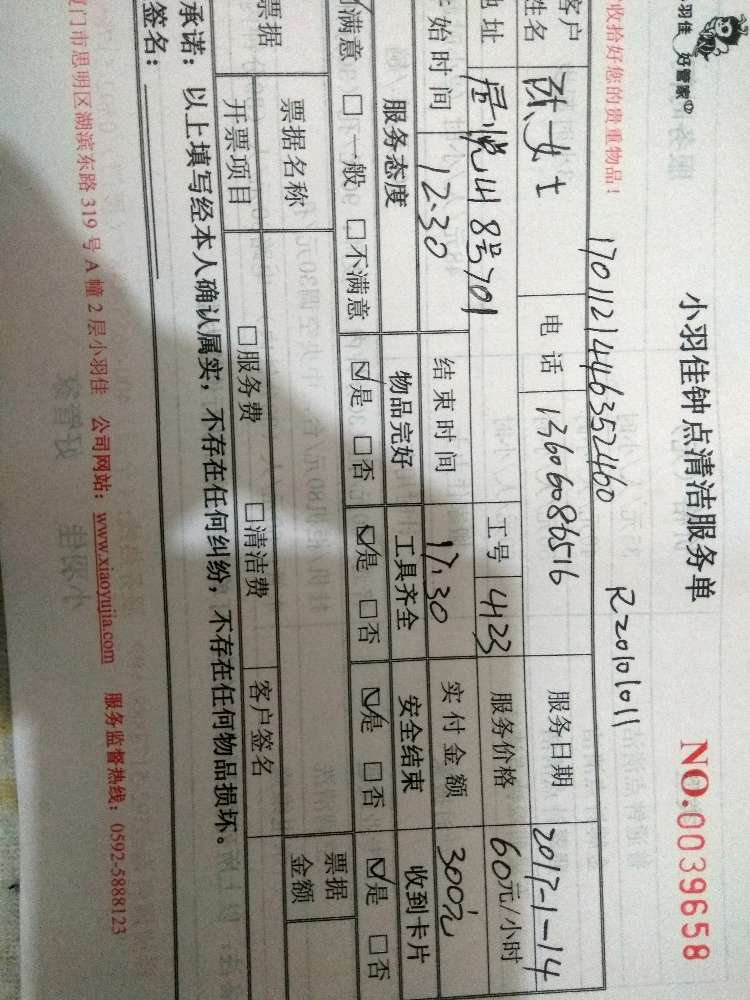 小羽佳 好管家
小羽佳钟点清洁服务单
NO.0039658
收拾好您的贵重物品!
1701121446352460
R20101011
客户姓名 陈女士 电话 13606086516 服务日期 2017-1-14
地址 居悦山8号701 工号 4123 服务价格 60元/小时
开始时间 12:30 结束时间 17:30 实付金额 300元
服务态度 物品完好 工具齐全 安全结束 收到卡片
☑满意 □一般 □不满意 ☑是 □否 ☑是 □否 ☑是 □否 ☑是 □否
票据 票据名称 票据金额
开票项目 □服务费 □清洁费 客户签名
承诺:以上填写经本人确认属实,不存在任何纠纷,不存在任何物品损坏。
签名:
厦门市思明区湖滨东路319号A幢2层小羽佳 公司网站:www.xiaoyujia.com 服务监督热线:0592-5888123